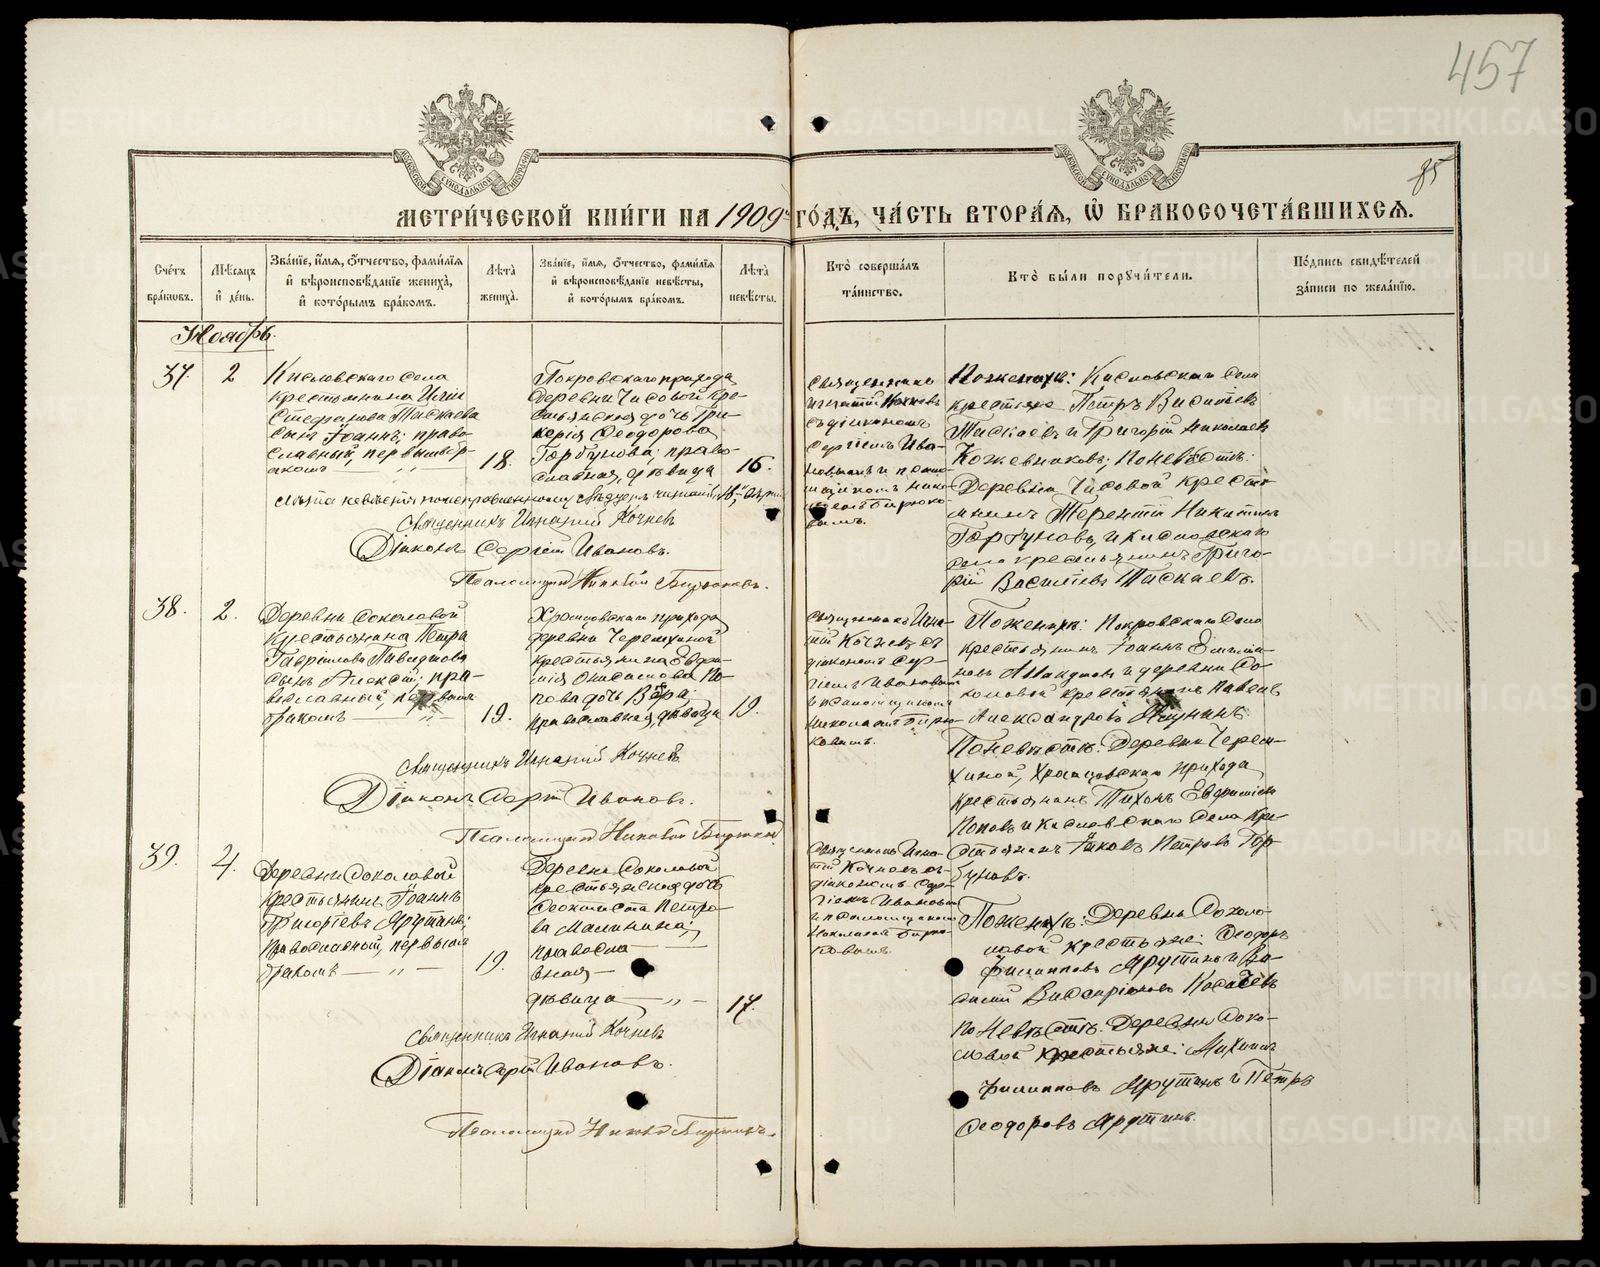 457
85
МЕТРИ́ЧЕСКОЙ КНИ́ГИ НА 1909 ГО́ДЪ, ЧА́СТЬ ВТОРА́Я, Ѡ҆ БРАКОСОЧЕТА́ВШИХСЯ.
Сче́тъ бра́ковъ.
Мѣ́сяцъ и҆ де́нь.
Зва́нїе, и҆́мя, о҆́тчество, фами́лїя и҆ вѣроисповѣ́данїе жениха̀, и҆ кото́рымъ бра́комъ.
Лѣ́та жениха̀.
Зва́нїе, и҆́мя, о҆́тчество, фами́лїя и҆ вѣроисповѣ́данїе невѣ́сты, и҆ кото́рымъ бра́комъ.
Лѣ́та невѣ́сты.
Кто̀ соверша́лъ та́инство.
Кто̀ бы́ли порꙋчи́тели.
По́дпись свидѣ́телей за́писи по жела́нїю.
Ноябрь.
37.
2
Кисловскаго села
крестьянина
Стефанова Таскаева
сынъ Іоаннъ; право-
славный, первымъ
бракомъ — „ —
18.
Покровскаго прихода
деревни Часовой кре-
стьянская дочь Гли-
керія Ѳеодорова
Горбунова; право-
славная, дѣвица
16.
Священникъ
Игнатій Кочневъ
съ діакономъ
Сергіемъ Ива-
новымъ и псалом-
щикомъ Нико-
лаемъ Бирюко-
вымъ.
По женихѣ: Кисловскаго села
крестьяне Петръ Василіевъ
Таскаевъ и Григорій Николаевъ
Кожевниковъ; по невѣстѣ:
Деревни Часовой крестья-
нинъ Терентій Никитинъ
Горбуновъ, и Кисловскаго
села крестьянинъ Григо-
рій Василіевъ Таскаевъ.
Священникъ Игнатій Кочневъ
Діаконъ Сергій Ивановъ.
Псаломщикъ Николай Бирюковъ.
38.
2.
Деревни Соколовой
крестьянина Петра
Гавріилова
сынъ Алексій; пра-
вославный, первымъ
бракомъ — „ —
19.
Храмцовскаго прихода
деревни Черемхиной
крестьянина Евфи-
мія По-
пова дочь Вѣра
православная, дѣвица
19.
Священникъ Игна-
тій Кочневъ съ
діакономъ Сер-
гіемъ Ивановымъ
и псаломщикомъ
Николаемъ Бирю-
ковымъ.
По женихѣ: Покровскаго села
крестьянинъ Іоаннъ
и деревни Со-
коловой крестьянинъ Павелъ
Александровъ
По невѣстѣ: Деревни Черем-
хиной, Храмцовскаго прихода
крестьянинъ Тихонъ Евфиміевъ
Поповъ и Кисловскаго села кре-
стьянинъ Іаковъ Петровъ Гор-
буновъ.
Священникъ Игнатій Кочневъ
Діаконъ Сергій Ивановъ.
Псаломщикъ Николай Бирюковъ
39.
4.
Деревни Соколовой
крестьянинъ Іоаннъ
Григоріевъ Ярутинъ;
православный, первымъ
бракомъ — „ —
19.
Деревни Соколовой
крестьянская дочь
Ѳеоктиста Петро-
ва Малинина;
правосла-
вная —
дѣвица — „ —
17.
Священникъ Игна-
тій Кочневъ съ
діакономъ Сер-
гіемъ Ивановымъ
и псаломщикомъ
Николаемъ Бирю-
ковымъ.
По женихѣ: Деревни Соколо-
вой крестьяне: Ѳеодоръ
Филипповъ Ярутинъ и Ва-
силій Косачевъ
по невѣстѣ: Деревни Соко-
ловой крестьяне:
Филипповъ Ярутинъ и Петръ
Ѳеодоровъ Ярутинъ.
Священникъ Игнатій Кочневъ
Діаконъ Сергій Ивановъ.
Псаломщикъ Николай Бирюковъ.
METRIKI.GASO-URAL.RU